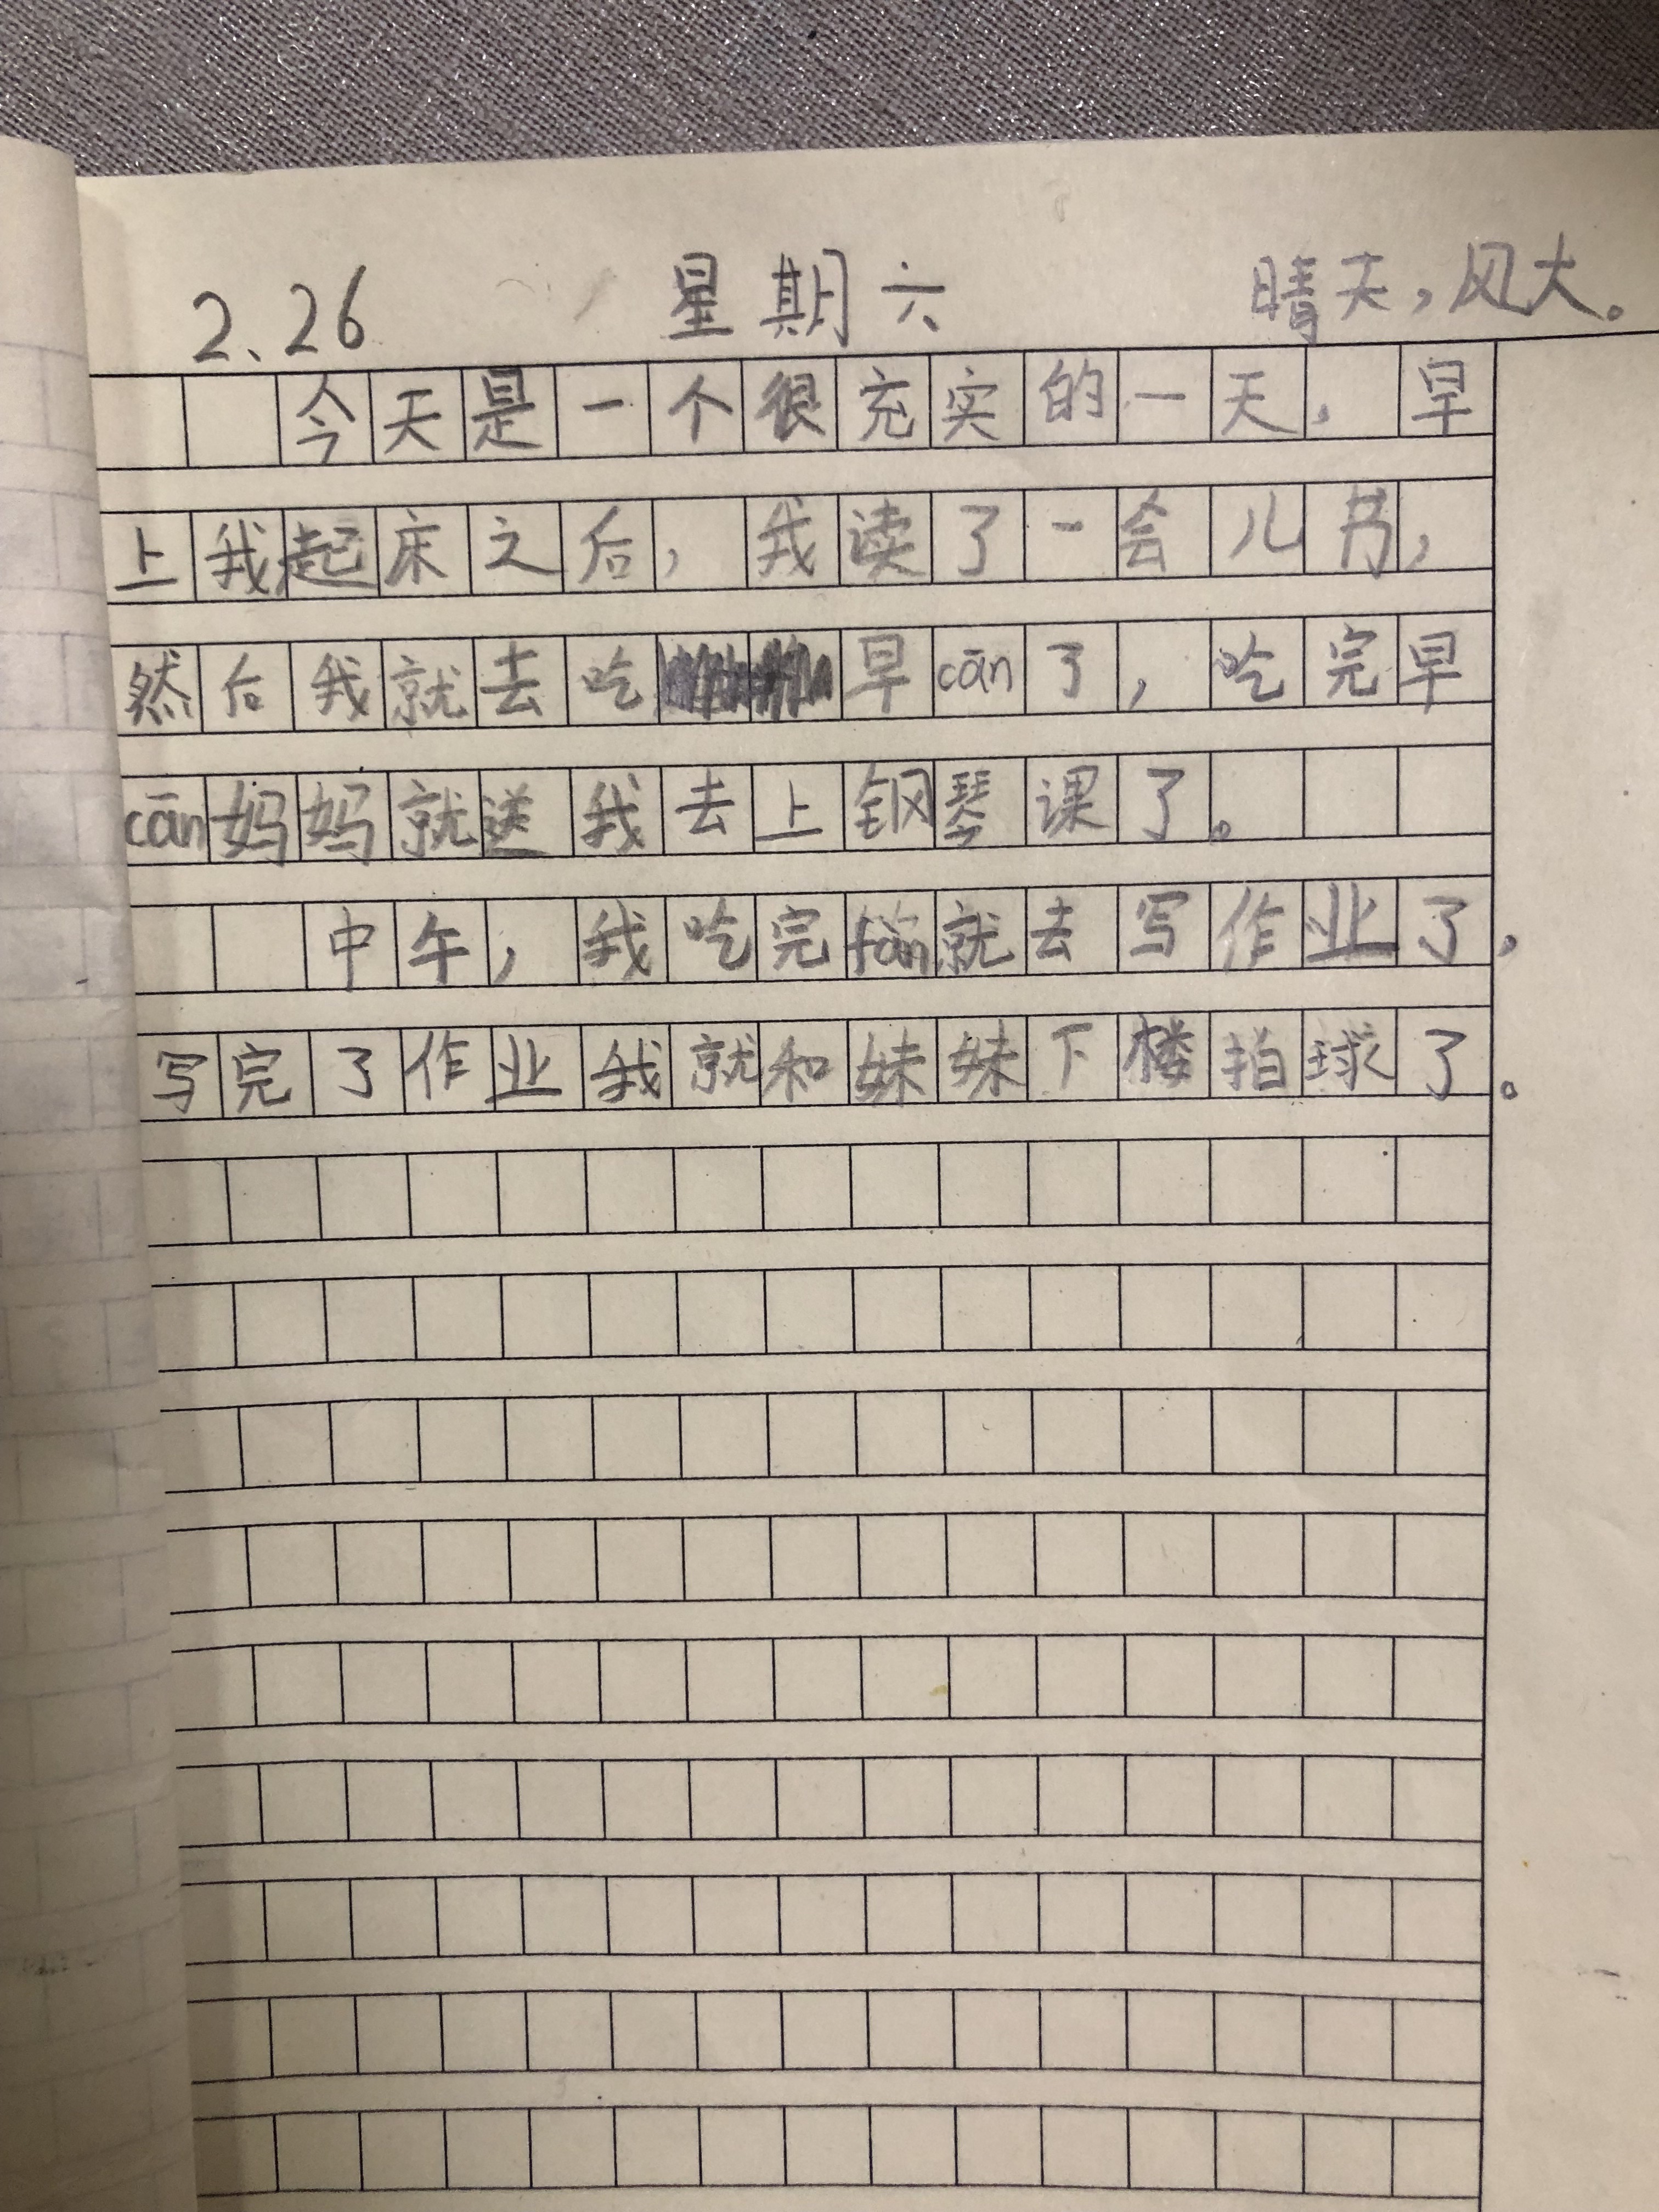 2、26 星期六 晴天，风大。
今天是一个很充实的一天，早
上我起床之后，我读了一会儿书，
然后我就去吃早cān了，吃完早
cān妈妈就送我去上钢琴课了。
中午，我吃完fàn就去写作业了，
写完了作业我就和妹妹下楼拍球了。